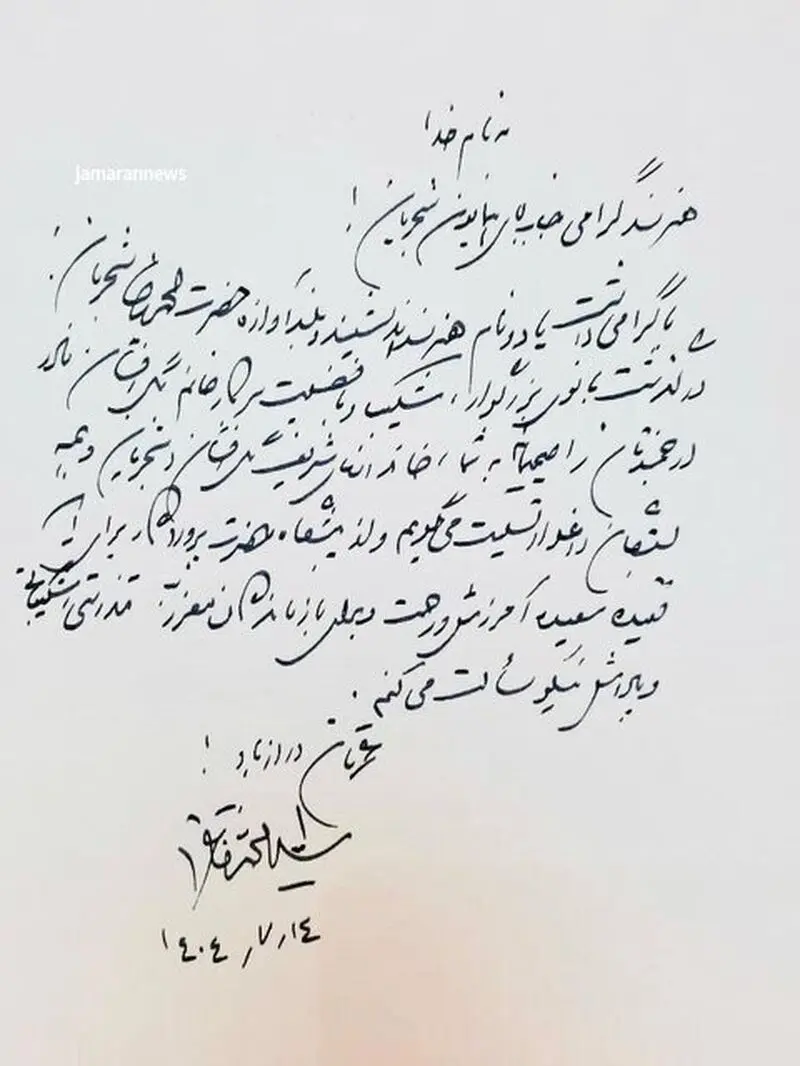 به نام خدا
jamarannews
هنرمند گرامی جناب آقای همایون شجریان!
با گرامی داشت یاد و نام هنرمند اندیشمند و بلندآوازه حضرت محمدرضا شجریان!
درگذشت بانوی بزرگوار، شکیبا و با فضیلت سرکار خانم گل افشان مادر
ارجمندتان را صمیمانه به شما، خاندانهای شریف گل افشان و شجریان و همه
بستگان داغدار تسلیت می گویم و از پیشگاه حضرت پروردگار برای آن
فقیده سعیده آمرزش و رحمت و برای بازماندگان معزز تندرستی، شکیبائی
و پاداش نیکو مسألت می کنم.
عمرتان دراز باد!
سید محمد خاتمی
۱۴۰۴/۷/۱۴